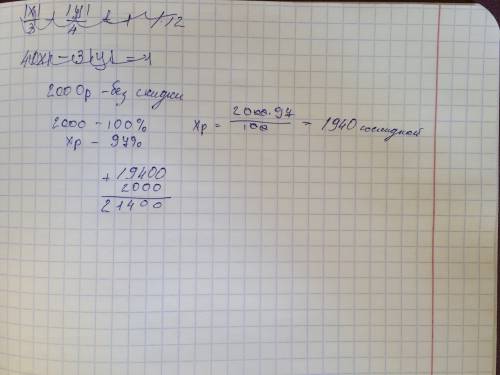 |x|/3 + |y|/4
2000р – без скидки
2000 – 100%
xр – 97%
xр = 2000·97/100 = 1940 со скидкой
+ 19400
2000
21400